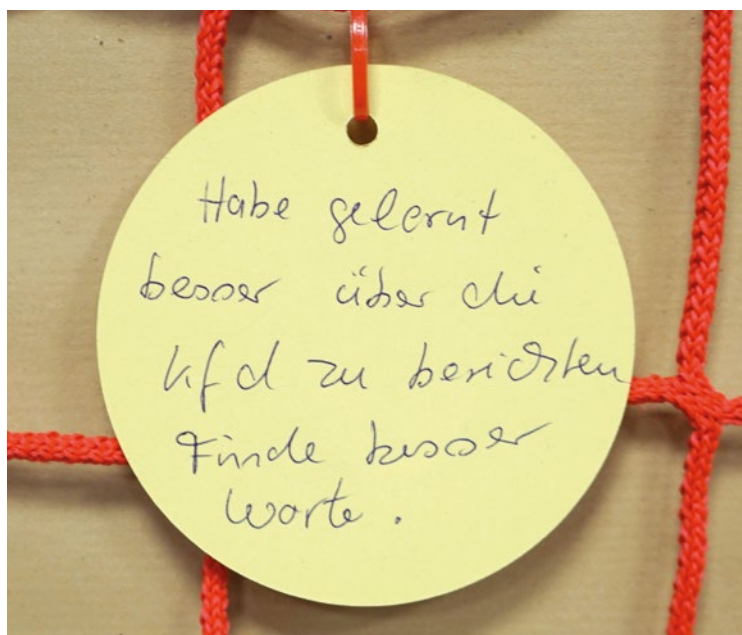 Habe gelernt
besser über die
kfd zu berichten
Finde besser
Worte.